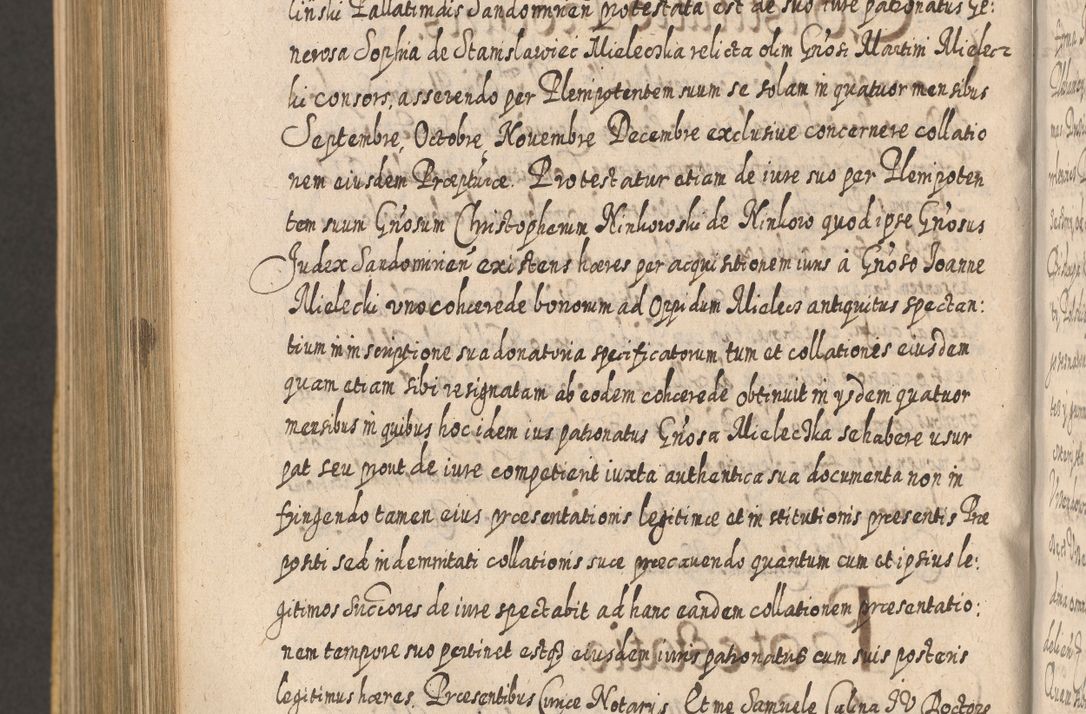 linski Pallatimdis Sandomirien protestata est de suo iure patronatus Ge:
nerosa Sophia de Stanislawiec Mielecka relicta olim Gn̄osi Martini Mielec
ki consors, asserendo per Plenipotentem suum se solam in quatuor mensibus
Septembre, Octobre, Novembre Decembre exclusive concernere collatio
nem eiusdem Præpturæ. Protestatur etiam de iure suo per Plenipoten
tem suum Gn̄osum Christopherum Ninkowski de Ninkow quod ipse Gn̄osus
Judex Sandomirien̄ existens hæres per acquisitionem iuris à Gn̄oso Joanne
Mielecki uno cohærede bonorum ad Oppidum Mielec antiquitus spectan:
tium in inscriptione sua donatoria specificatorum tum et collationes eiusdem
quam etiam sibi resignatam ab eodem cohærede obtinuit in ysdem quatuor
mensibus in quibus hoc idem ius patronatus Gn̄osa Mielecka se habere usur
pat seu prout de iure competierit iuxta authentica sua documenta non in
fringendo tamen eius præsentationis legitimæ et institutionis præsentis Præ
positi sed indemnitati collationis suæ præcavendo quantum cum et ipsius le:
gitimos Succ̄ores de iure spectabit ad hanc eandem collationem præsentatio:
nem tempore suo pertinet estq3 eiusdem iuris patronatus cum suis posteris
legitimus hæres. Præsentibus Curiæ Notarys. Et me Samuele Calina IV Doctore